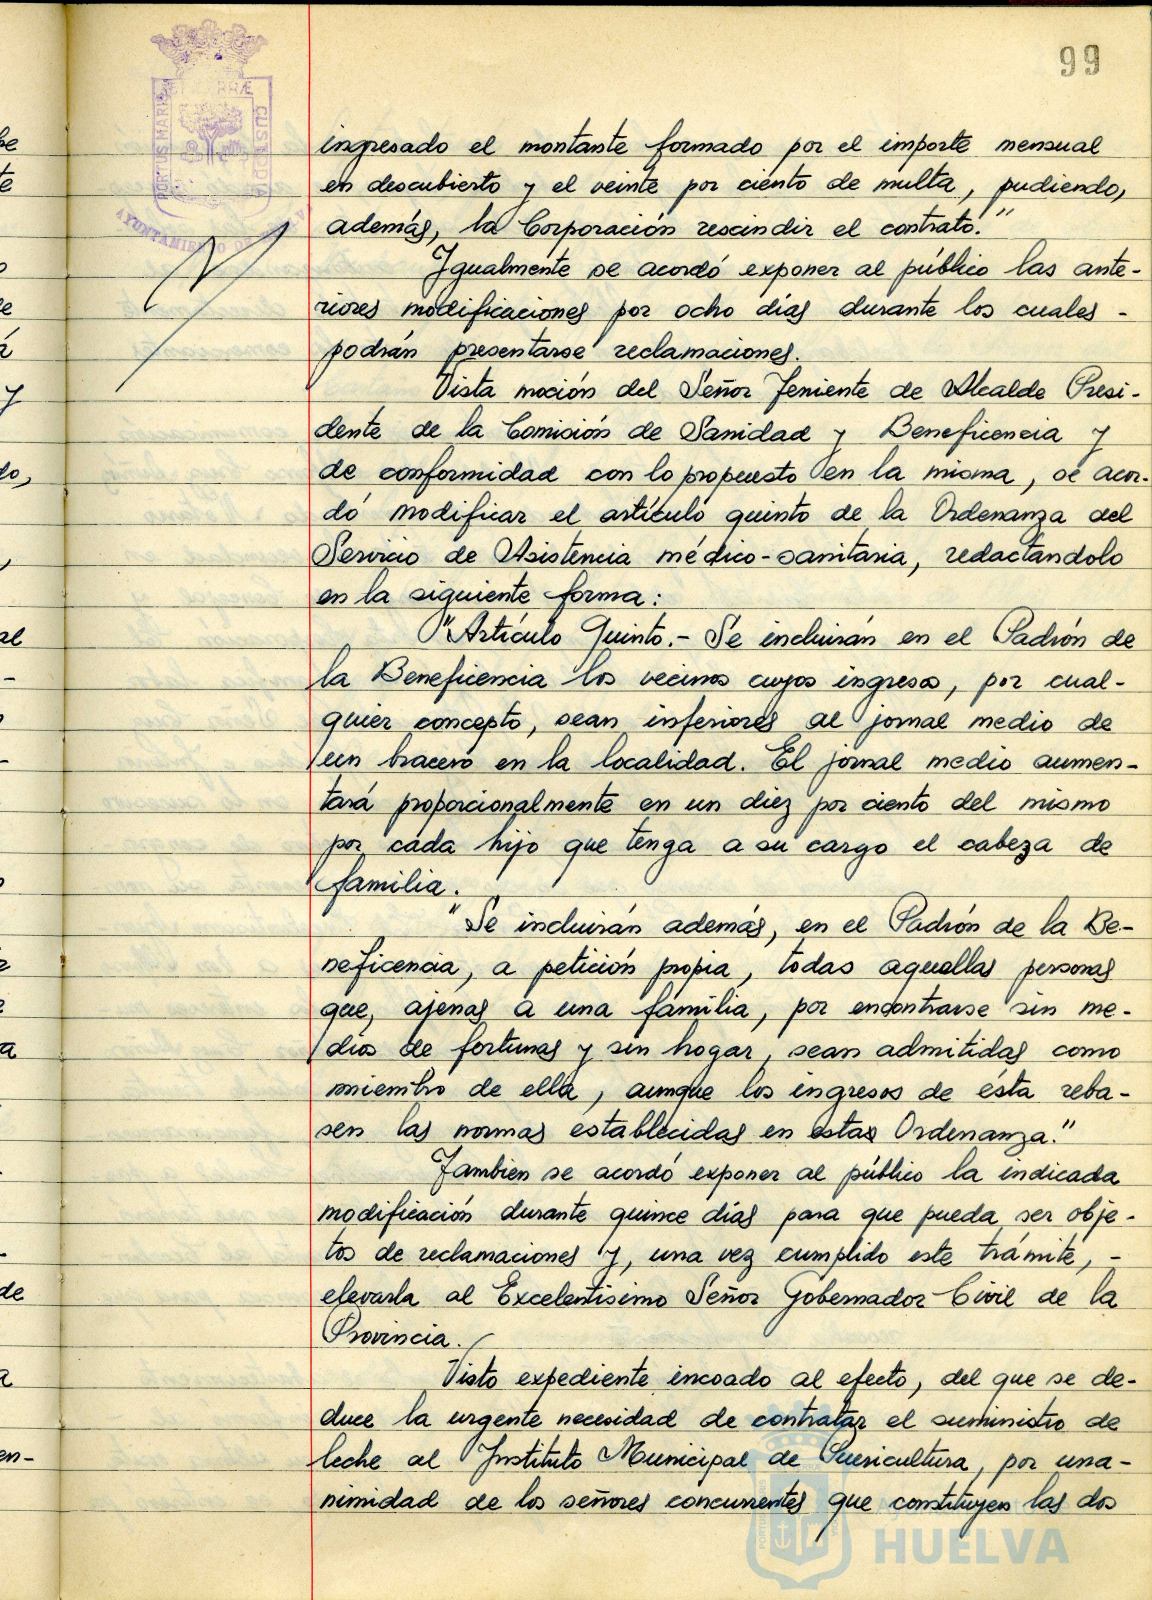 99
PORTUS MARIS ET TERRÆ CUSTODIA
AYUNTAMIENTO DE
ingresado el montante formado por el importe mensual
en descubierto y el veinte por ciento de multa, pudiendo,
además, la Corporación rescindir el contrato."
Igualmente se acordó exponer al público las ante-
riores modificaciones por ocho días durante los cuales -
podrán presentarse reclamaciones.
Vista moción del Señor Teniente de Alcalde Presi-
dente de la Comisión de Sanidad y Beneficencia y
de conformidad con lo propuesto en la misma, se acor-
dó modificar el artículo quinto de la Ordenanza del
Servicio de Asistencia médico-sanitaria, redactándolo
en la siguiente forma:
"Artículo Quinto.- Se incluirán en el Padrón de
la Beneficencia los vecinos cuyos ingresos, por cual-
quier concepto, sean inferiores al jornal medio de
un bracero en la localidad. El jornal medio aumen-
tará proporcionalmente en un diez por ciento del mismo
por cada hijo que tenga a su cargo el cabeza de
familia.
"Se incluirán además, en el Padrón de la Be-
neficencia, a petición propia, todas aquellas personas
que, ajenas a una familia, por encontrarse sin me-
dios de fortunas y sin hogar, sean admitidas como
miembro de ella, aunque los ingresos de ésta reba-
sen las normas establecidas en estas Ordenanza."
Tambien se acordó exponer al público la indicada
modificación durante quince días para que pueda ser obje-
tos de reclamaciones y, una vez cumplido este trámite, -
elevarla al Excelentísimo Señor Gobernador Civil de la
Provincia.
Visto expediente incoado al efecto, del que se de-
duce la urgente necesidad de contratar el suministro de
leche al Instituto Municipal de Puericultura, por una-
nimidad de los señores concurrentes que constituyen las dos
HUELVA